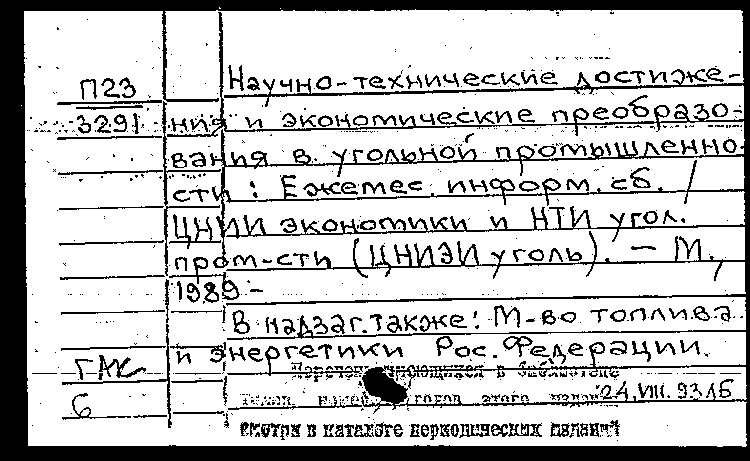 П23
3291
Научно-технические достиже-
ния и экономические преобразо-
вания в угольной промышленно-
сти : Ежемес. информ. сб. /
ЦНИИ экономики и НТИ угол.
пром-сти (ЦНИЭИуголь). — М.,
1989 -
В надзаг. также: М-во топлива
и энергетики Рос. Федерации.
6
Перечень имеющихся в библиотеке
томов, номеров, годов этого издания
24.VIII.93
смотри в каталоге периодических изданий